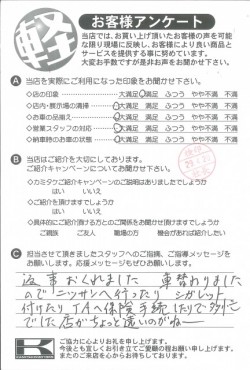 軽
お客様アンケート
当店では、お買い上げ頂いたお客様の声を可能
な限り現場に反映し、お客様により良い商品と
サービスを提供する事に努めています。
大変お手数ですが是非お声をお聞かせ下さい。
A 当店を実際にご利用になった印象をお聞かせ下さい。
◇店の印象 大満足 満足 ふつう やや不満 不満
◇店内・展示場の清掃 大満足 満足 ふつう やや不満 不満
◇お車の品揃え 大満足 満足 ふつう やや不満 不満
◇営業スタッフの対応 大満足 満足 ふつう やや不満 不満
◇納車時のお車の状態 大満足 満足 ふつう やや不満 不満
B 当店はご紹介を大切にしております。
ご紹介キャンペーンについてお聞かせ下さい。
◇カミタケご紹介キャンペーンのご説明はありましたでしょうか
はい いいえ
◇ご紹介キャンペーンについてご理解頂けましたでしょうか
はい いいえ
◇具体的にご紹介頂ける方とのご関係をお聞かせ頂けますでしょうか
ご親族 ご友人 職場の方 機会があれば紹介したい
C 担当させて頂きましたスタッフへのご指摘、ご指導メッセージを
お願いします。応援メッセージもぜひお願いします。
返事おくれました 車替わりました
のでニッサンへ行ったり シガレット
付けたり JAへ保険手続したりで
でした 店がちょっと遠いのがねー
K
ご協力に心よりお礼を申し上げます。
今後とも宜しくお引き立てご愛顧の程お願い申し上げます。
またのご来店を心からお待ちしております。